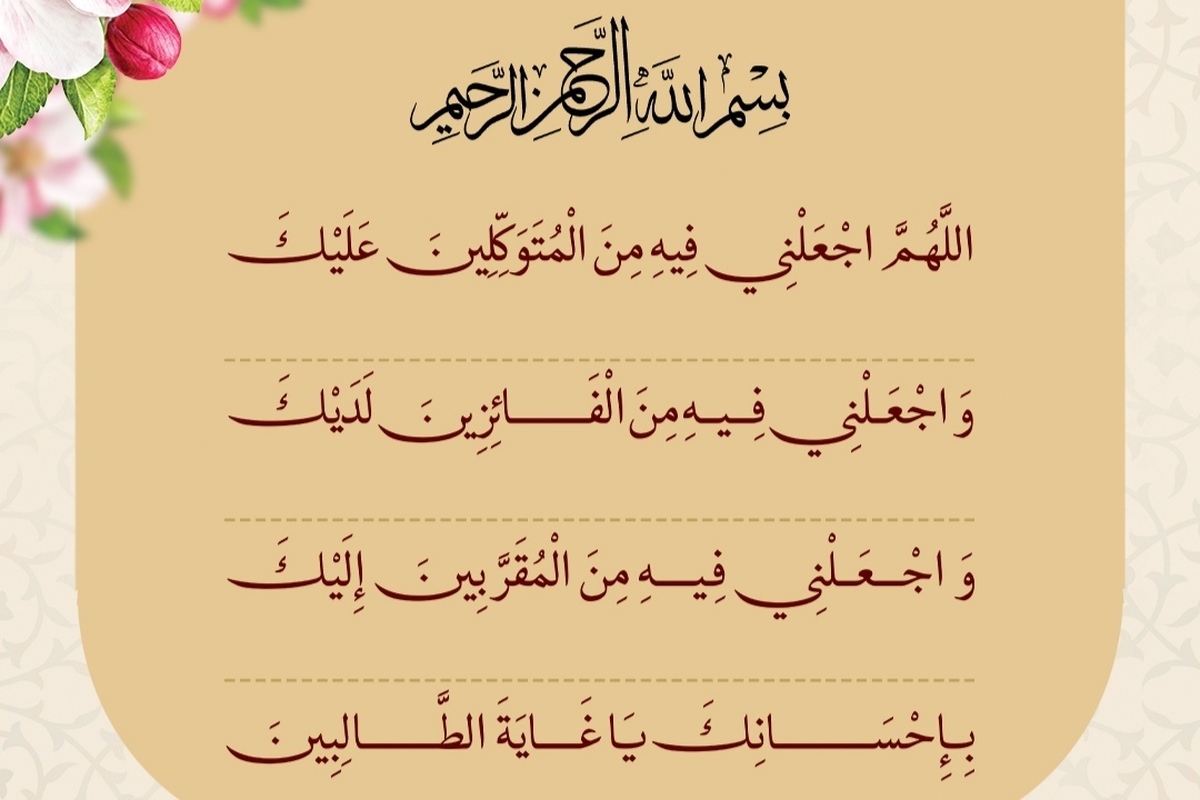 بِسْمِ اللَّهِ الرَّحْمنِ الرَّحِيمِ
اللَّهُمَّ اجْعَلْنِي فِيهِ مِنَ الْمُتَوَكِّلِينَ عَلَيْكَ
وَ اجْعَلْنِي فِيهِ مِنَ الْفَائِزِينَ لَدَيْكَ
وَ اجْعَلْنِي فِيهِ مِنَ الْمُقَرَّبِينَ إِلَيْكَ
بِإِحْسَانِكَ يَا غَايَةَ الطَّالِبِينَ